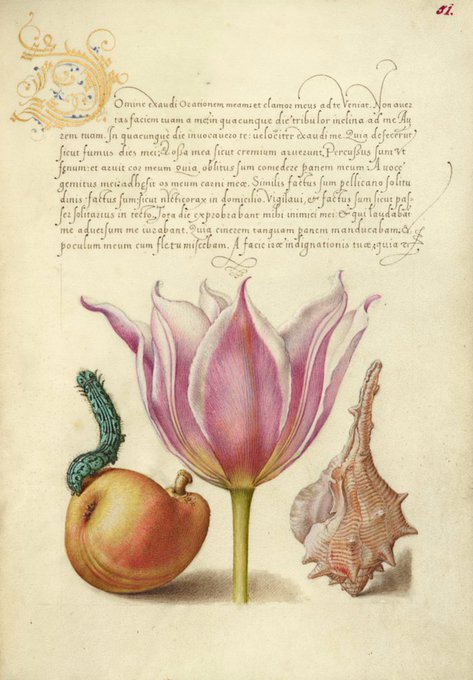 51.
Domine exaudi Orationem meam: et clamor meus ad te Veniat. Non auer
tas faciem tuam a me: in quacunque die tribulor inclina ad me Au
rem tuam. In quacunque die inuocauero te: velociter exaudi me. Quia defecerut
sicut fumus dies mei: & ossa mea sicut cremium aruerunt. Percussus sum Vt
fenum: et aruit cor meum quia oblitus sum comedere panem meum. A voce
gemitus mei: adhesit os meum carni meæ. Similis factus sum pellicano solitu
dinis: factus sum sicut nicticorax in domicilio. Vigilaui, & factus sum sicut pas
ser solitarius in tecto. Tota die exprobrabant mihi inimici mei: & qui laudabāt
me aduersum me iurabant. Quia cinerem tanquam panem manducabam, &
poculum meum cum fletu miscebam. A facie iræ indignationis tuæ: quia &c